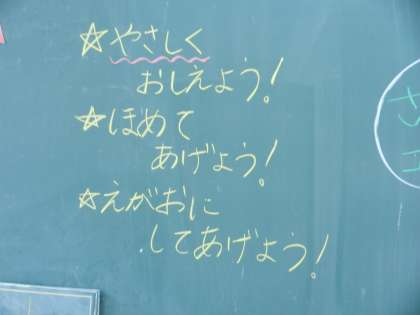 ☆やさしく
おしえよう!
☆ほめて
あげよう!
☆えがおに
してあげよう!